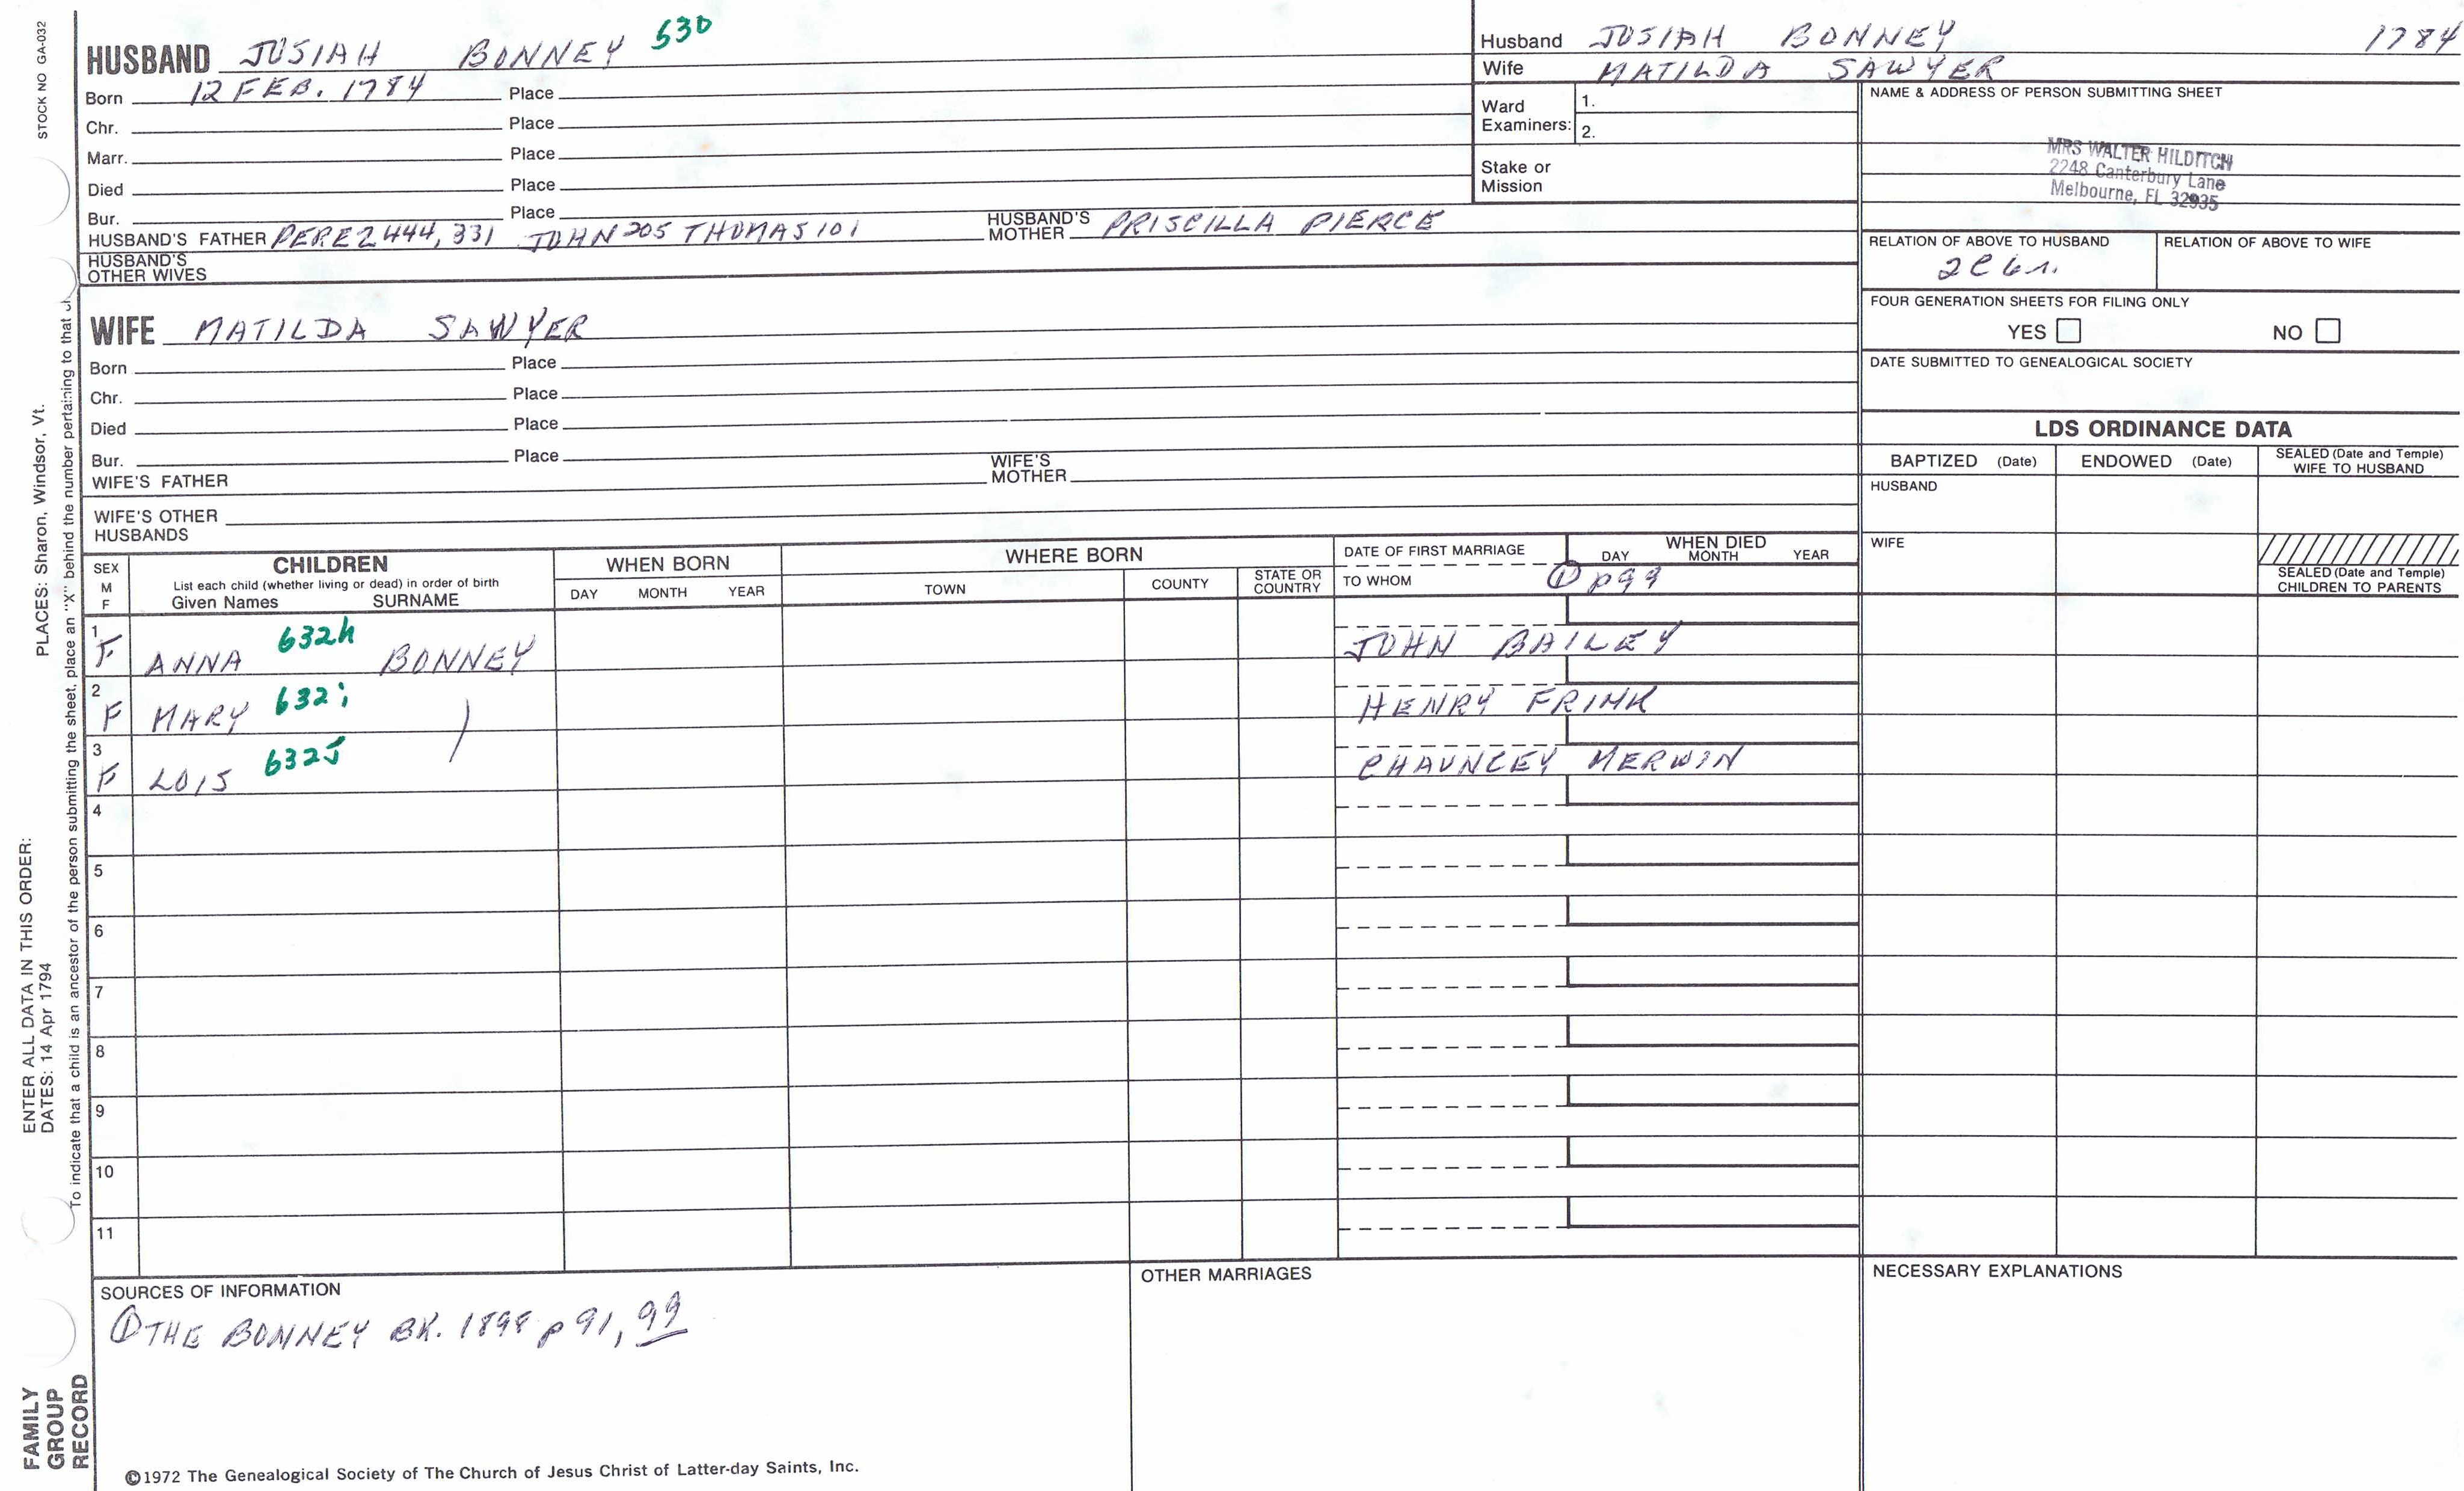 STOCK NO GA-032
HUSBAND JOSIAH BONNEY 530
Born 12 FEB. 1784 Place
Chr. Place
Marr. Place
Died Place
Bur. Place
HUSBAND'S FATHER PEREZ 444, 331 JOHN 205 THOMAS 101 HUSBAND'S MOTHER PRISCILLA PIERCE
HUSBAND'S OTHER WIVES
Husband JOSIAH BONNEY 1784
Wife MATILDA SAWYER
Ward Examiners: 1.
2.
Stake or Mission
NAME & ADDRESS OF PERSON SUBMITTING SHEET
MRS WALTER HILDITCH
2248 Canterbury Lane
Melbourne, FL 32935
RELATION OF ABOVE TO HUSBAND RELATION OF ABOVE TO WIFE
FOUR GENERATION SHEETS FOR FILING ONLY
YES NO
DATE SUBMITTED TO GENEALOGICAL SOCIETY
WIFE MATILDA SAWYER
Born Place
Chr. Place
Died Place
Bur. Place
WIFE'S FATHER WIFE'S MOTHER
WIFE'S OTHER HUSBANDS
LDS ORDINANCE DATA
BAPTIZED (Date) ENDOWED (Date) SEALED (Date and Temple) WIFE TO HUSBAND
HUSBAND
WIFE
SEALED (Date and Temple) CHILDREN TO PARENTS
SEX M F
CHILDREN
List each child (whether living or dead) in order of birth
Given Names SURNAME
WHEN BORN
DAY MONTH YEAR
WHERE BORN
TOWN COUNTY STATE OR COUNTRY
DATE OF FIRST MARRIAGE
TO WHOM
WHEN DIED
DAY MONTH YEAR
① p99
1 F ANNA 632h BONNEY JOHN BAILEY
2 F MARY 632i HENRY FRINK
3 F LOIS 632J CHAUNCEY MERWIN
4
5
6
7
8
9
10
11
SOURCES OF INFORMATION
① THE BONNEY BK. 1898 p 91, 99
OTHER MARRIAGES
NECESSARY EXPLANATIONS
©1972 The Genealogical Society of The Church of Jesus Christ of Latter-day Saints, Inc.
FAMILY GROUP RECORD
ENTER ALL DATA IN THIS ORDER:
DATES: 14 Apr 1794
PLACES: Sharon, Windsor, Vt.
To indicate that a child is an ancestor of the person submitting the sheet, place an "X" behind the number pertaining to that